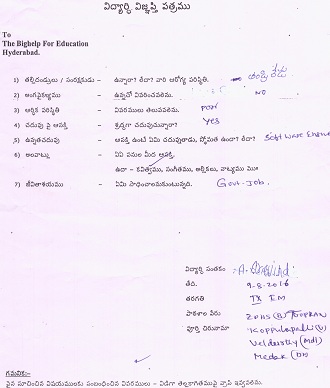 విద్యార్థి విజ్ఞప్తి పత్రము
To
The Bighelp For Education
Hyderabad.
1) తల్లిదండ్రులు / సంరక్షకుడు – ఉన్నారా? లేదా? వారి ఆరోగ్య పరిస్థితి. తండ్రి లేడు
2) అంగవైకల్యము – ఉన్నచో వివరించవలెను. NO
3) ఆర్థిక పరిస్థితి – వివరములు తెలుపవలెను. poor
4) చదువు పై ఆసక్తి – శ్రద్ధగా చదువుచున్నారా? Yes
5) ఉన్నతచదువు – ఆసక్తి ఉంటే ఏమి చదువుతాడు, స్తోమత ఉందా? లేదా? Software
6) అలవాట్లు – ఏఏ పనుల మీద ఆసక్తి.
ఉదా – కవిత్వము, సంగీతము, ఆర్టికలు, నాట్యము
7) జీవితాశయము – ఏమి సాధించాలనుకుంటున్నది. Govt-Job.
విద్యార్థి సంతకం : A.
తేది. 9-8-2016
తరగతి IX EM
పాఠశాల పేరు ZPHS (B) TOOPRAN
పూర్తి చిరునామా (V)
Veldurthy (Mdl)
Medak (Dt)
గమనిక:–
పైన సూచించిన విషయములకు సంబంధించిన వివరములు – విడిగా తెల్లకాగితముపై వ్రాసి ఇవ్వవలెను.